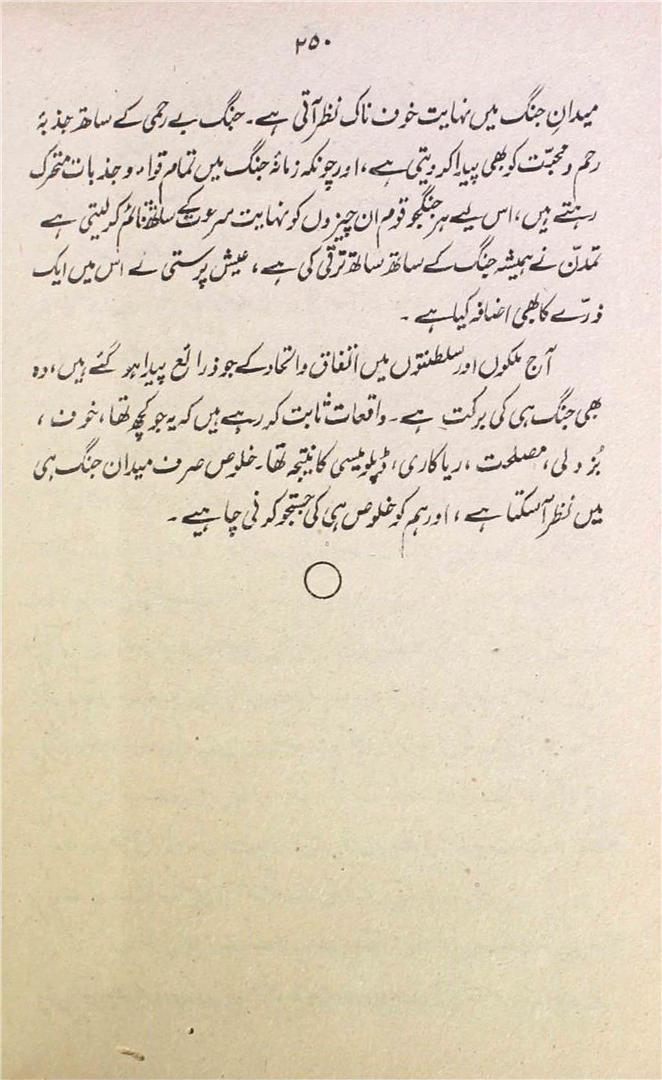 ۲۵۰
میدانِ جنگ میں نہایت خوف ناک نظر آتی ہے۔ جنگ بے رحمی کے ساتھ جذبۂ
رحم و محبّت کو بھی پیدا کر دیتی ہے، اور چونکہ زمانۂ جنگ میں تمام قواء و جذبات متحرک
رہتے ہیں، اس لیے ہر جنگجو قوم ان چیزوں کو نہایت سرعت کے ساتھ قائم کر لیتی ہے
تمدّن نے ہمیشہ جنگ کے ساتھ ساتھ ترقی کی ہے، عیش پرستی نے اس میں ایک
ذرّے کا بھی اضافہ کیا ہے۔
آج ملکوں اور سلطنتوں میں اتفاق و اتحاد کے جو ذرائع پیدا ہو گئے ہیں، وہ
بھی جنگ ہی کی برکت ہے۔ واقعات ثابت کر رہے ہیں کہ یہ جو کچھ تھا، خوف،
بُزدلی، مصلحت، ریاکاری، ڈپلومیسی کا نتیجہ تھا۔ خلوص صرف میدان جنگ ہی
میں نظر آ سکتا ہے، اور ہم کو خلوص ہی کی جستجو کرنی چاہیے۔